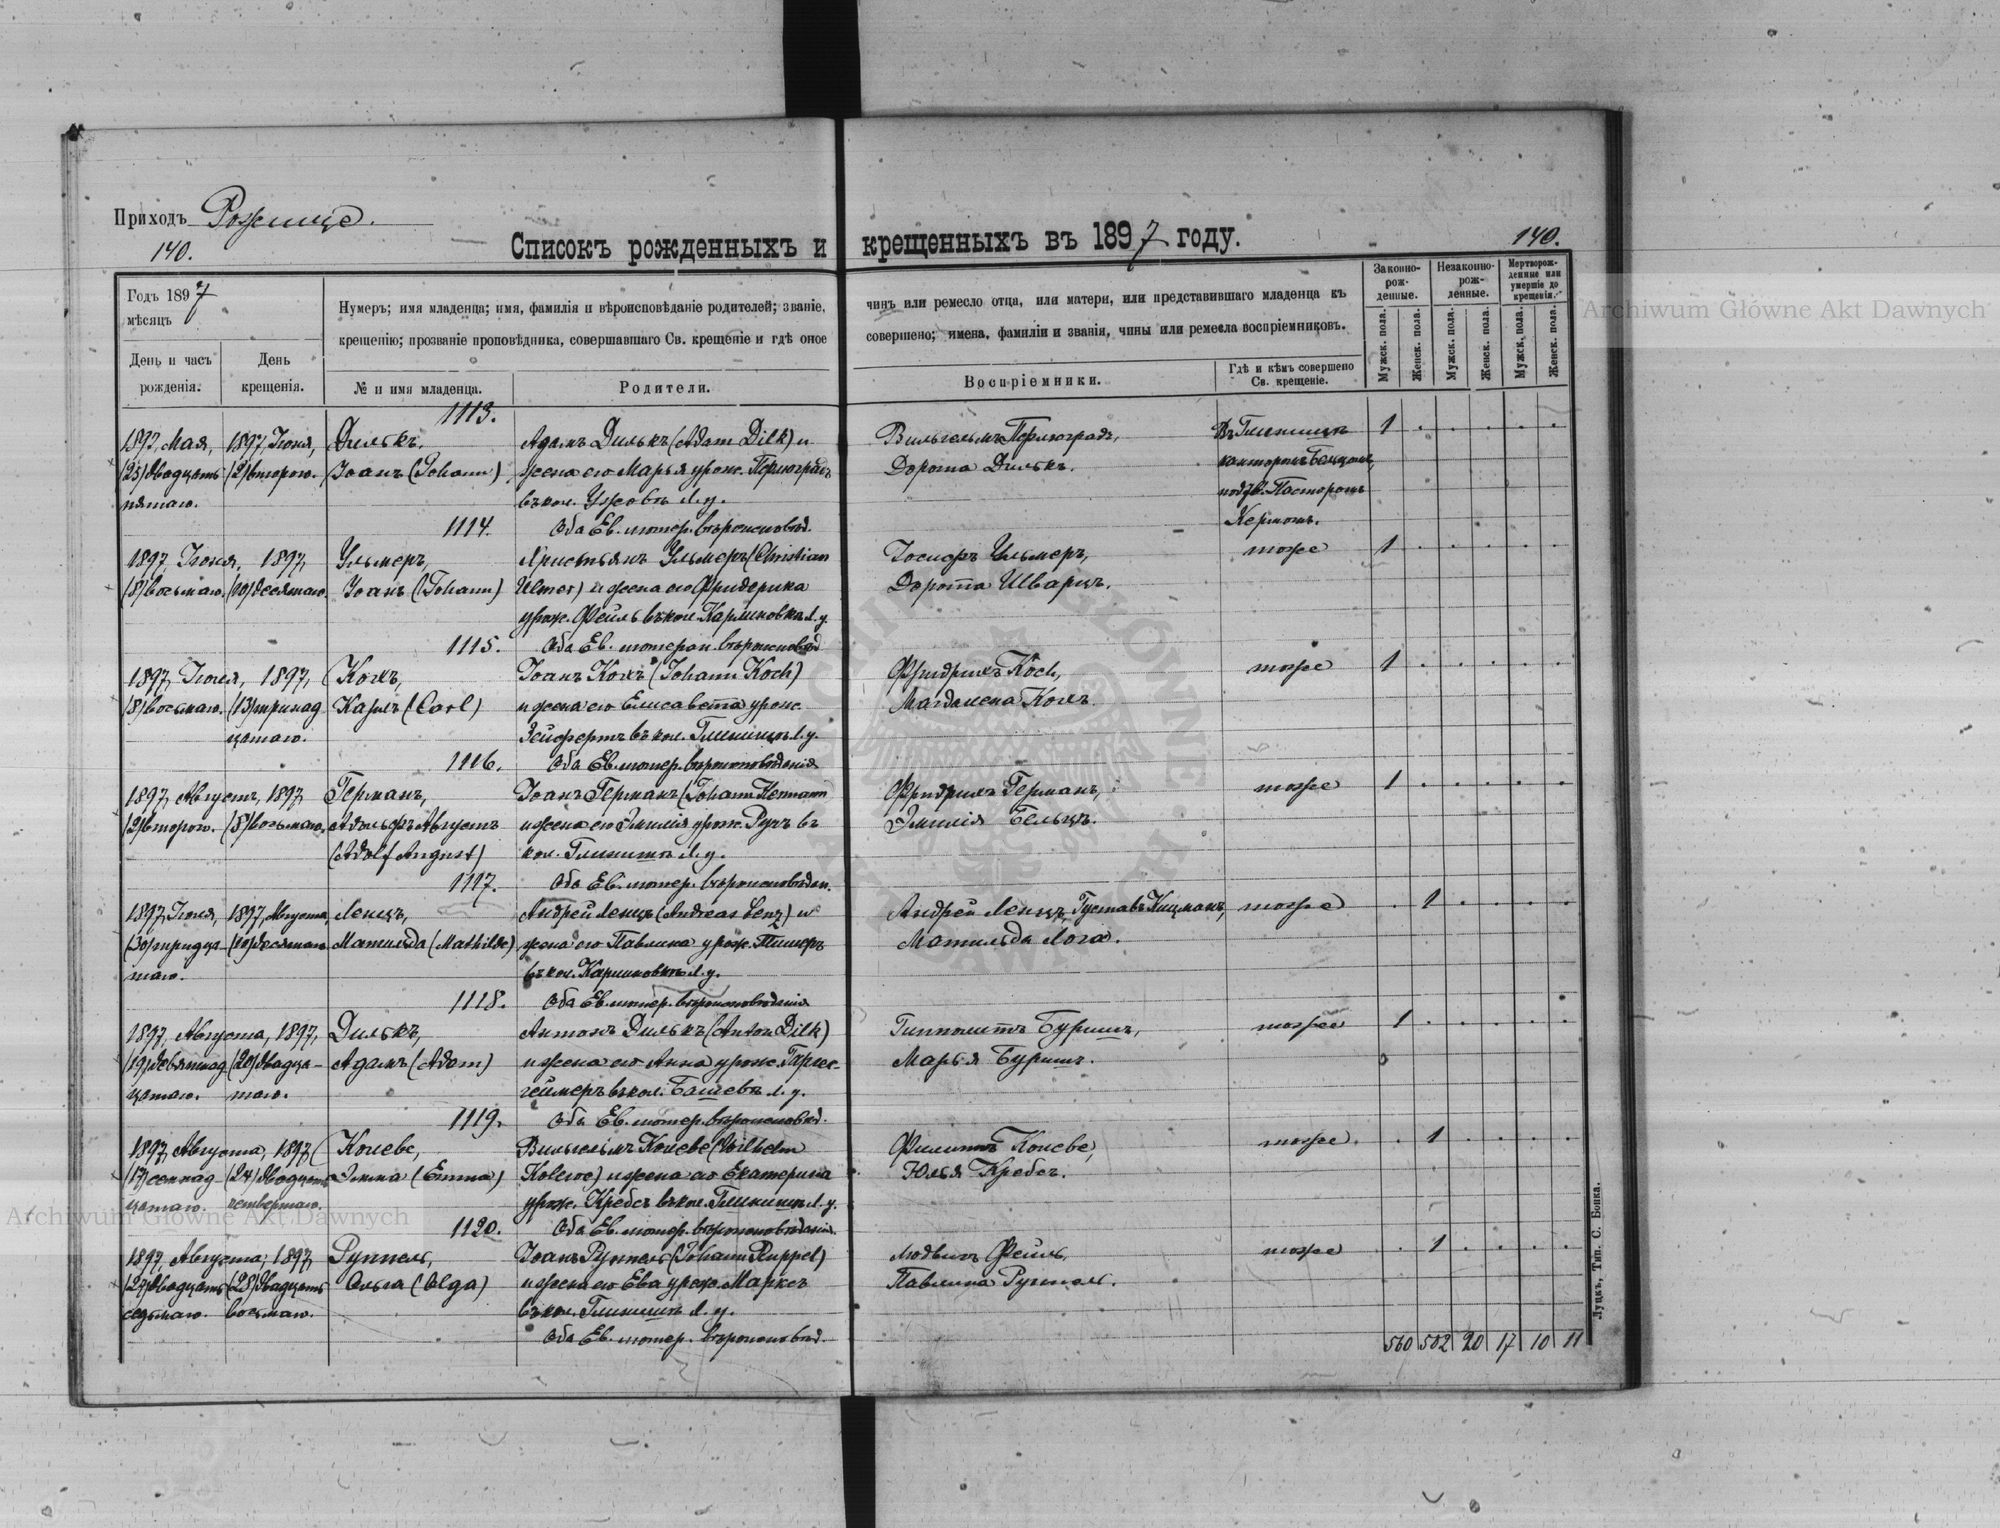 Приходъ Рожище.
140.
Списокъ рожденныхъ и крещенныхъ въ 1897 году.
140.
Годъ 1897
мѣсяцъ
День и часъ рожденія.
День крещенія.
Нумеръ; имя младенца; имя, фамилія и вѣроисповѣданіе родителей; званіе, чинъ или ремесло отца, или матери, или представившаго младенца къ
крещенію; прозваніе проповѣдника, совершавшаго Св. крещеніе и гдѣ оное совершено; имена, фамиліи и званія, чины или ремесла воспріемниковъ.
№ и имя младенца.
Родители.
Воспріемники.
Гдѣ и кѣмъ совершено Св. крещеніе.
Законно-рож-денные.
Незаконно-рож-ленные.
Мертворож-денные или умершіе до крещенія.
Мужск. пола.
Женск. пола.
Мужск. пола.
Женск. пола.
Мужск. пола.
Женск. пола.
1113.
1897, Мая, 1897, Іюня, Дилькъ, Адамъ Дилькъ (Adam Dilk) и Вильгельмъ 1
(25) двадцать (2) второго. Іоанъ (Johann) жена его Марья урож. Дорота Дилькъ.
пятаго. въ кол. Л. у. Пасторомъ
1114. Оба Ев. лютер. вѣроисповѣд.
1897, Іюня, 1897, Ульмеръ, Христьянъ Ульмеръ (Christian Іосифъ Ульмеръ, тоже 1
(8) восьмаго. (10) десятаго. Іоанъ (Johann) Ulmer) и жена его Фридерика Дорота Шварцъ.
урож. Фейль въ кол. Карлиновка Л. у.
1115. Оба Ев. лютеран. вѣроисповѣд
1897, 1897, Кохъ, Іоанъ Кохъ (Johann Koch) Фридрихъ Koch, тоже 1
(8) восьмаго. (13) тринад Карлъ (Carl) и жена его Елисавета урож. Магдалена Кохъ
цатаго. Зейфертъ въ кол. Л. у.
1116. Оба Ев. лютер. вѣроисповѣданія
1897, Августъ, 1897, Германъ, Іоанъ Германъ (Johann Hermann Фридрихъ Германъ, тоже 1
(2) второго. восьмаго, Адольфъ Августъ и жена его Эмилія урож. въ Эмилія Бельцъ.
(Adolf August) кол. Л. у.
1117. Оба Ев. лютер. вѣроисповѣдан.
1897, 1897, Августа, Ленцъ, Андрей Ленцъ (Andreas Lenz) и Андрей Ленцъ, Густавъ Кицманъ, тоже 1
(30) тридца- (10) десятаго Матильда (Mathilde) жена его Павлина урож. Матильда Лога.
таго. въ кол. Карлиновка Л. у.
1118. Оба Ев. лютер. вѣроисповѣданія
1897, Августа, 1897, Дилькъ, Антонъ Дилькъ (Anton Dilk) Гипполитъ Буришъ, тоже 1
(19) девятнад (20) двадца- Адамъ (Adam) и жена его Анна урож. Марья Буришъ.
цатаго. таго. геймеръ въ кол. Л. у.
1119. Оба Ев. лютер. вѣроисповѣд.
1897, Августа, 1897, Колеве, Вильгельмъ Колеве (Wilhelm Филиппъ Колеве, тоже. 1
(17) семнад- (24) двадцать Эмма (Emma) Kolewe) и жена его Екатерина Юлья Кребсъ.
цатаго. четвертаго. урож. Кребсъ въ кол. Л. у.
1120. Оба Ев. лютер. вѣроисповѣданія.
1897, Августа, 1897, Руппель, Іоанъ Руппель (Johann Ruppel) Людвигъ Фейль, тоже 1
(27) двадцать (28) двадцать Ольга (Olga) и жена его Ева урож. Марксъ Павлина Руппель.
седьмаго. восьмаго. въ кол. Л. у.
Оба Ев. лютер. вѣроисповѣд.
560 502 20 17 10 11
Луцкъ, Тип. С. Бонка.
Archiwum Główne Akt Dawnych
Archiwum Główne Akt Dawnych